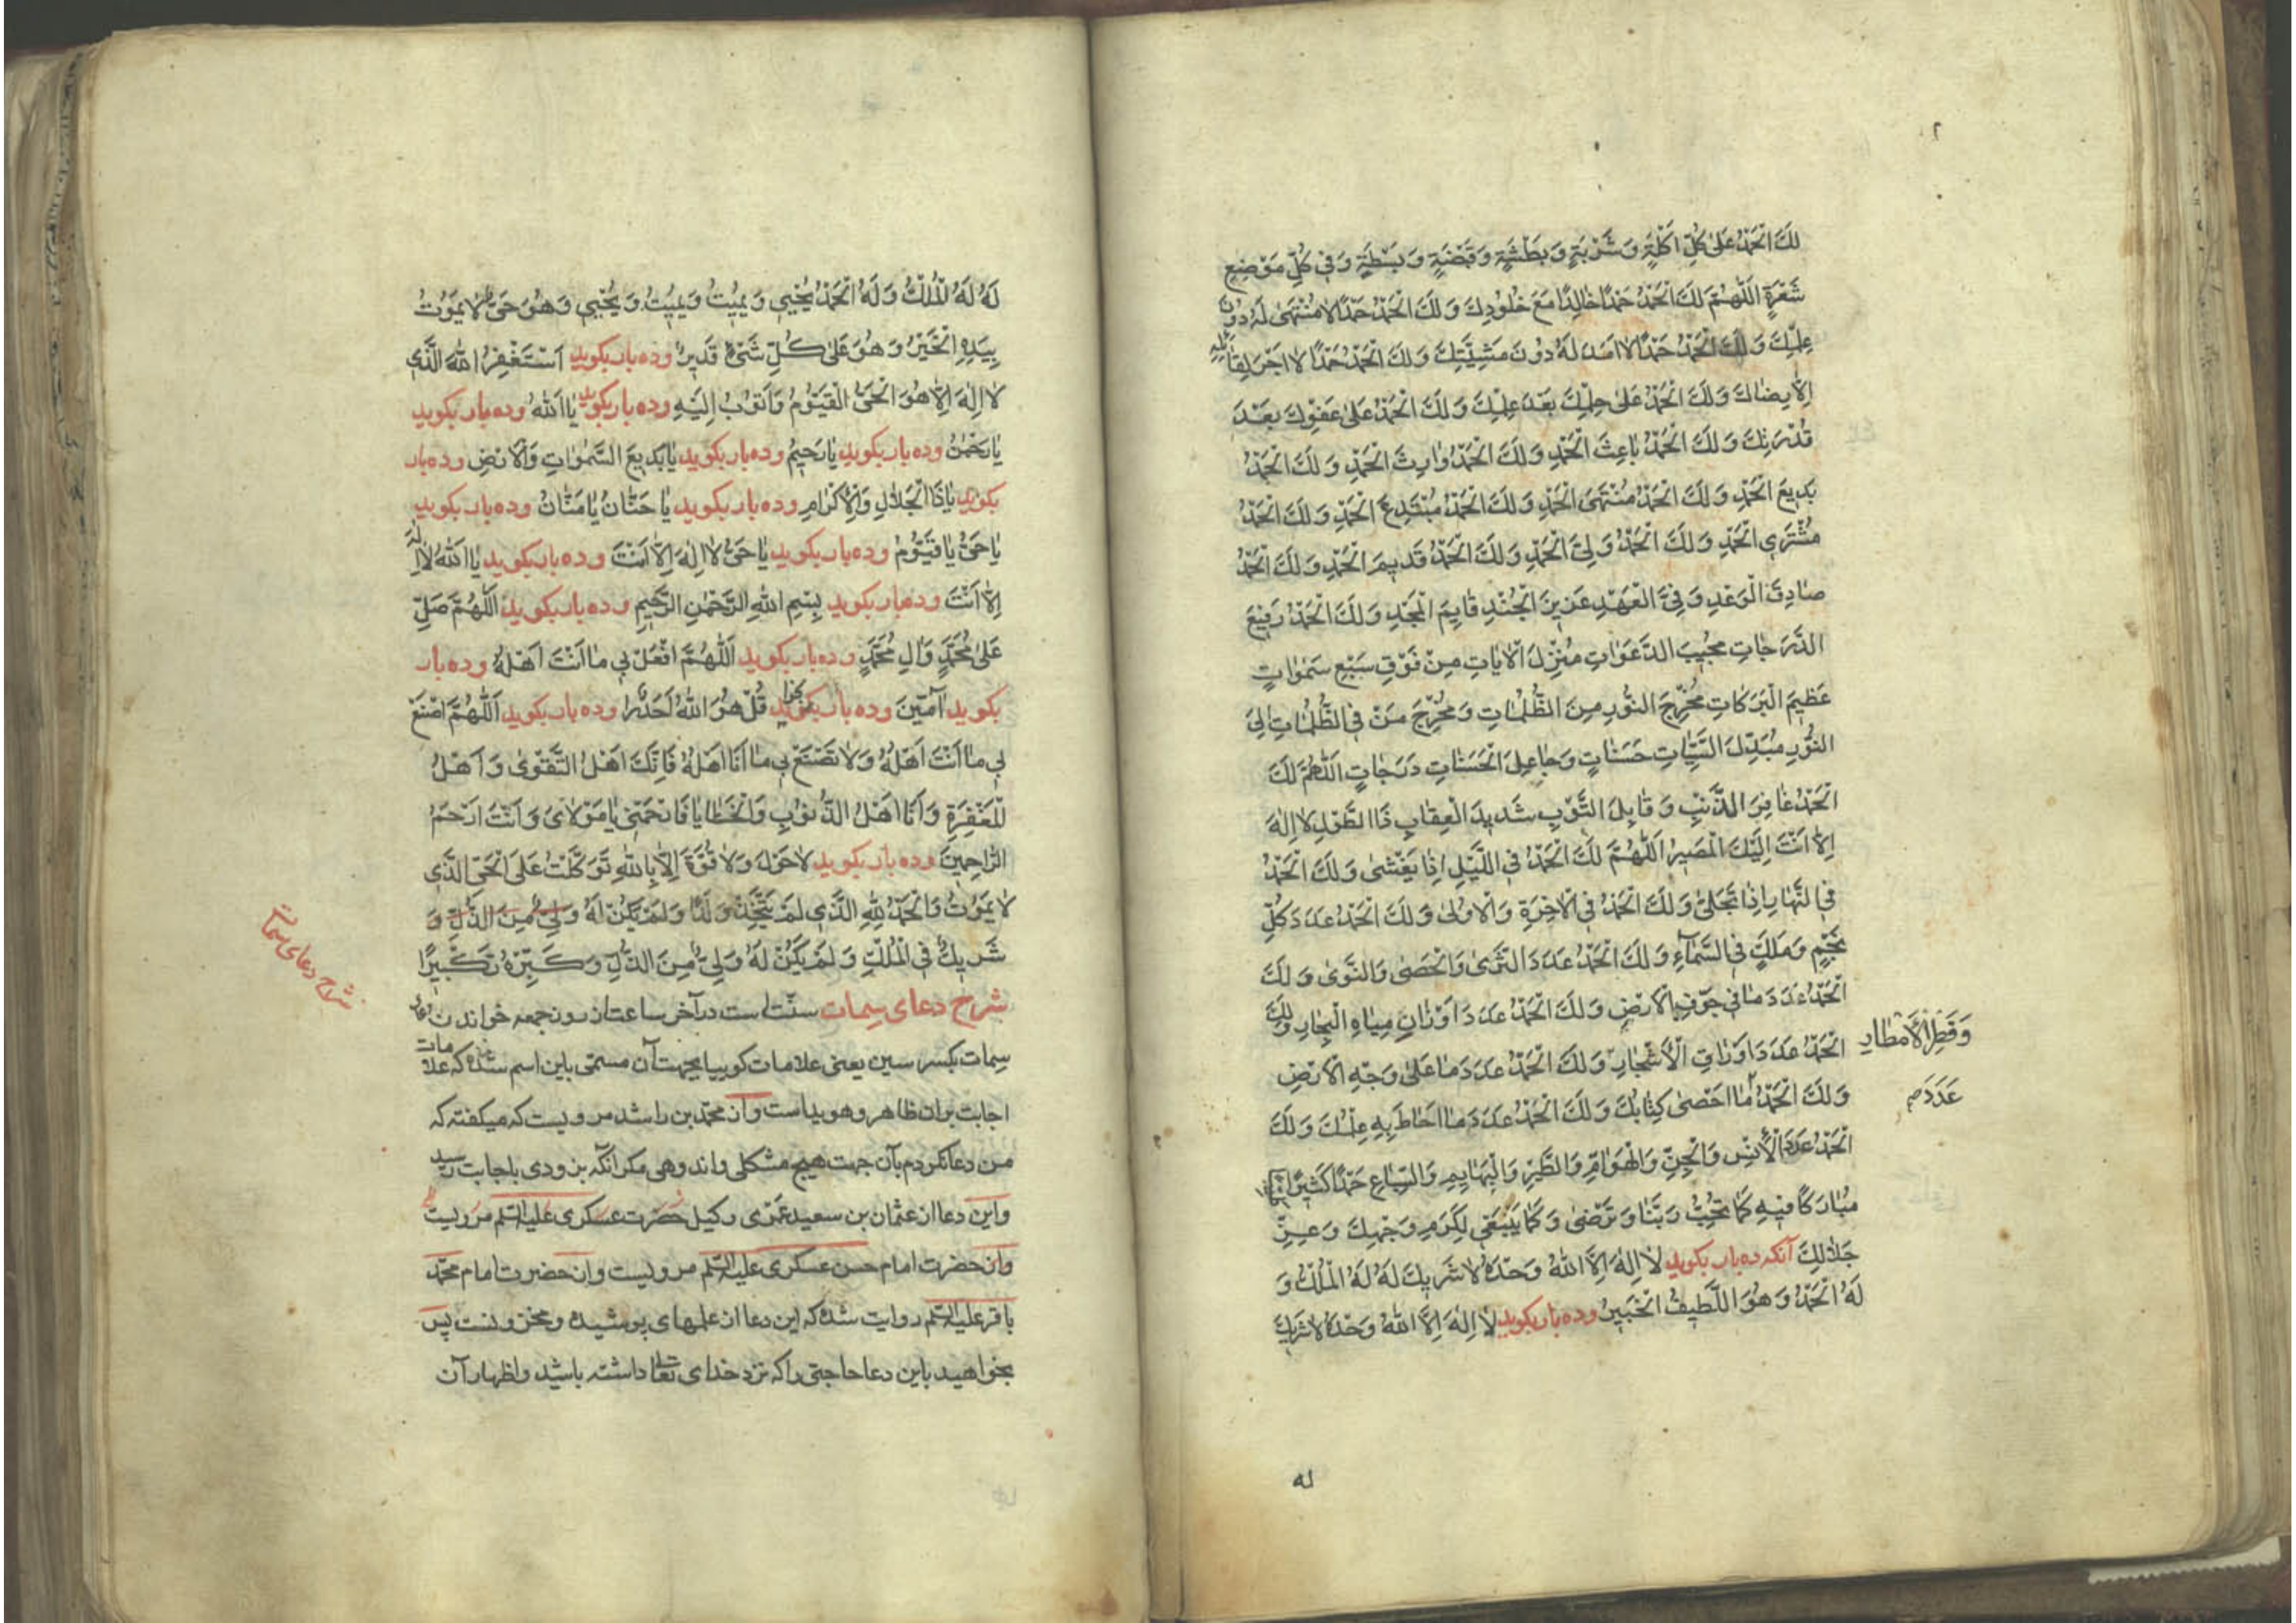 لَكَ الْحَمْدُ عَلىٰ كُلِّ اَكْلَةٍ وَ شَرْبَةٍ وَ بَطْشَةٍ وَ قَبْضَةٍ وَ بَسْطَةٍ وَ فِي كُلِّ مَوْضِعِ
شَعْرَةٍ اَللّٰهُمَّ لَكَ الْحَمْدُ حَمْدًا خَالِدًا مَعَ خُلُودِكَ وَ لَكَ الْحَمْدُ حَمْدًا لا مُنْتَهىٰ لَهُ دُونَ
عِلْمِكَ وَ لَكَ الْحَمْدُ حَمْدًا لا اَمَدَ لَهُ دُونَ مَشِيَّتِكَ وَ لَكَ الْحَمْدُ حَمْدًا لا اَجْرَ لِقَائِلِهِ
اِلّا رِضَاكَ وَ لَكَ الْحَمْدُ عَلىٰ حِلْمِكَ بَعْدَ عِلْمِكَ وَ لَكَ الْحَمْدُ عَلىٰ عَفْوِكَ بَعْدَ
قُدْرَتِكَ وَ لَكَ الْحَمْدُ بَاعِثَ الْحَمْدِ وَ لَكَ الْحَمْدُ وَارِثَ الْحَمْدِ وَ لَكَ الْحَمْدُ
بَدِيعَ الْحَمْدِ وَ لَكَ الْحَمْدُ مُنْتَهَى الْحَمْدِ وَ لَكَ الْحَمْدُ مُبْتَدِعَ الْحَمْدِ وَ لَكَ الْحَمْدُ
مُشْتَرِي الْحَمْدِ وَ لَكَ الْحَمْدُ وَلِيَّ الْحَمْدِ وَ لَكَ الْحَمْدُ قَدِيمَ الْحَمْدِ وَ لَكَ الْحَمْدُ
صَادِقَ الْوَعْدِ وَفِيَّ الْعَهْدِ عَزِيزَ الْجُنْدِ قَايِمَ الْمَجْدِ وَ لَكَ الْحَمْدُ رَفِيعَ
الدَّرَجَاتِ مُجِيبَ الدَّعَوَاتِ مُنْزِلَ الْاٰيَاتِ مِنْ فَوْقِ سَبْعِ سَمٰوَاتٍ
عَظِيمَ الْبَرَكَاتِ مُخْرِجَ النُّورِ مِنَ الظُّلُمَاتِ وَ مُخْرِجَ مَنْ فِي الظُّلُمَاتِ اِلَى
النُّورِ مُبَدِّلَ السَّيِّئَاتِ حَسَنَاتٍ وَ جَاعِلَ الْحَسَنَاتِ دَرَجَاتٍ اَللّٰهُمَّ لَكَ
الْحَمْدُ غَافِرَ الذَّنْبِ وَ قَابِلَ التَّوْبِ شَدِيدَ الْعِقَابِ ذَا الطَّوْلِ لا اِلٰهَ
اِلّا اَنْتَ اِلَيْكَ الْمَصِيرُ اَللّٰهُمَّ لَكَ الْحَمْدُ فِي اللَّيْلِ اِذَا يَغْشىٰ وَ لَكَ الْحَمْدُ
فِي النَّهَارِ اِذَا تَجَلّىٰ وَ لَكَ الْحَمْدُ فِي الْاٰخِرَةِ وَ الْاُولىٰ وَ لَكَ الْحَمْدُ عَدَدَ كُلِّ
نَجْمٍ وَ مَلَكٍ فِي السَّمَآءِ وَ لَكَ الْحَمْدُ عَدَدَ الثَّرىٰ وَ الْحَصىٰ وَ النَّوىٰ وَ لَكَ
الْحَمْدُ عَدَدَ مَا فِي جَوْفِ الْاَرْضِ وَ لَكَ الْحَمْدُ عَدَدَ اَوْزَانِ مِيَاهِ الْبِحَارِ وَ لَكَ
وَ قَطْرِ الْاَمْطَارِ
الْحَمْدُ عَدَدَ اَوْرَاقِ الْاَشْجَارِ وَ لَكَ الْحَمْدُ عَدَدَ مَا عَلىٰ وَجْهِ الْاَرْضِ
عَدَدَ صح
وَ لَكَ الْحَمْدُ مَا اَحْصىٰ كِتَابُكَ وَ لَكَ الْحَمْدُ عَدَدَ مَا اَحَاطَ بِهِ عِلْمُكَ وَ لَكَ
الْحَمْدُ عَدَدَ الْاِنْسِ وَ الْجِنِّ وَ الْهَوَامِّ وَ الطَّيْرِ وَ الْبَهَايِمِ وَ السِّبَاعِ حَمْدًا كَثِيرًا
مُبَارَكًا فِيهِ كَمَا تُحِبُّ رَبَّنَا وَ تَرْضىٰ وَ كَمَا يَنْبَغِي لِكَرَمِ وَجْهِكَ وَ عِزِّ
جَلَالِكَ آنكه ده بار بكويد لا اِلٰهَ اِلَّا اللهُ وَحْدَهُ لا شَرِيكَ لَهُ لَهُ الْمُلْكُ وَ
لَهُ الْحَمْدُ وَ هُوَ اللَّطِيفُ الْخَبِيرُ وده بار بكويد لا اِلٰهَ اِلَّا اللهُ وَحْدَهُ لا شَرِيكَ
له
لَهُ لَهُ الْمُلْكُ وَ لَهُ الْحَمْدُ يُحْيِي وَ يُمِيتُ وَ يُمِيتُ وَ يُحْيِي وَ هُوَ حَيٌّ لا يَمُوتُ
بِيَدِهِ الْخَيْرُ وَ هُوَ عَلىٰ كُلِّ شَيْءٍ قَدِيرٌ وده بار بكويد اَسْتَغْفِرُ اللهَ الَّذِي
لا اِلٰهَ اِلّا هُوَ الْحَيُّ الْقَيُّومُ وَ اَتُوبُ اِلَيْهِ وده بار بكويد يَا اَللهُ وده بار بكويد
يَا رَحْمٰنُ وده بار بكويد يَا رَحِيمُ وده بار بكويد يَا بَدِيعَ السَّمٰوَاتِ وَ الْاَرْضِ وده بار
بكويد يَا ذَا الْجَلَالِ وَ الْاِكْرَامِ وده بار بكويد يَا حَنَّانُ يَا مَنَّانُ وده بار بكويد
يَا حَيُّ يَا قَيُّومُ وده بار بكويد يَا حَيُّ لا اِلٰهَ اِلّا اَنْتَ وده بار بكويد يَا اَللهُ لا اِلٰهَ
اِلّا اَنْتَ وده بار بكويد بِسْمِ اللهِ الرَّحْمٰنِ الرَّحِيمِ وده بار بكويد اَللّٰهُمَّ صَلِّ
عَلىٰ مُحَمَّدٍ وَ اٰلِ مُحَمَّدٍ وده بار بكويد اَللّٰهُمَّ افْعَلْ بِي مَا اَنْتَ اَهْلُهُ وده بار
بكويد آمِينَ وده بار بكويد قُلْ هُوَ اللهُ اَحَدٌ را وده بار بكويد اَللّٰهُمَّ اصْنَعْ
بِي مَا اَنْتَ اَهْلُهُ وَ لا تَصْنَعْ بِي مَا اَنَا اَهْلُهُ فَاِنَّكَ اَهْلُ التَّقْوىٰ وَ اَهْلُ
الْمَغْفِرَةِ وَ اَنَا اَهْلُ الذُّنُوبِ وَ الْخَطَايَا فَارْحَمْنِي يَا مَوْلَايَ وَ اَنْتَ اَرْحَمُ
الرَّاحِمِينَ وده بار بكويد لا حَوْلَ وَ لا قُوَّةَ اِلّا بِاللهِ تَوَكَّلْتُ عَلَى الْحَيِّ الَّذِي
لا يَمُوتُ وَ الْحَمْدُ لِلّٰهِ الَّذِي لَمْ يَتَّخِذْ وَلَدًا وَ لَمْ يَكُنْ لَهُ وَلِيٌّ مِنَ الذُّلِّ وَ
شَرِيكٌ فِي الْمُلْكِ وَ لَمْ يَكُنْ لَهُ وَلِيٌّ مِنَ الذُّلِّ وَ كَبِّرْهُ تَكْبِيرًا
شرح دعاى سمات
شرح دعاى سِمات سنّت است در آخر ساعت از روز جمعه خواندن دعاى
سِمات بكسر سين يعنى علامات كوييا بجهت آن مسمّى باين اسم شده كه علامات
اجابت بران ظاهر و هويداست و از محمّد بن راشد مرويست كه ميكفته كه
من دعا نكردم بآن جهت هيچ مشكلى و اندوهى مكر آنكه بزودى باجابت رسيد
و اين دعا از عثمان بن سعيد عَمْرى وكيل حضرت عسكرى عليه السّلم مرويست
و از حضرت امام حسن عسكرى عليه السّلم مرويست و از حضرت امام محمّد
باقر عليه السّلم روايت شده كه اين دعا از علمهاى پوشيده و مخزونست پس
بخواهيد باين دعا حاجتى را كه نزد خداى تعا داشته باشيد و اظهار آن